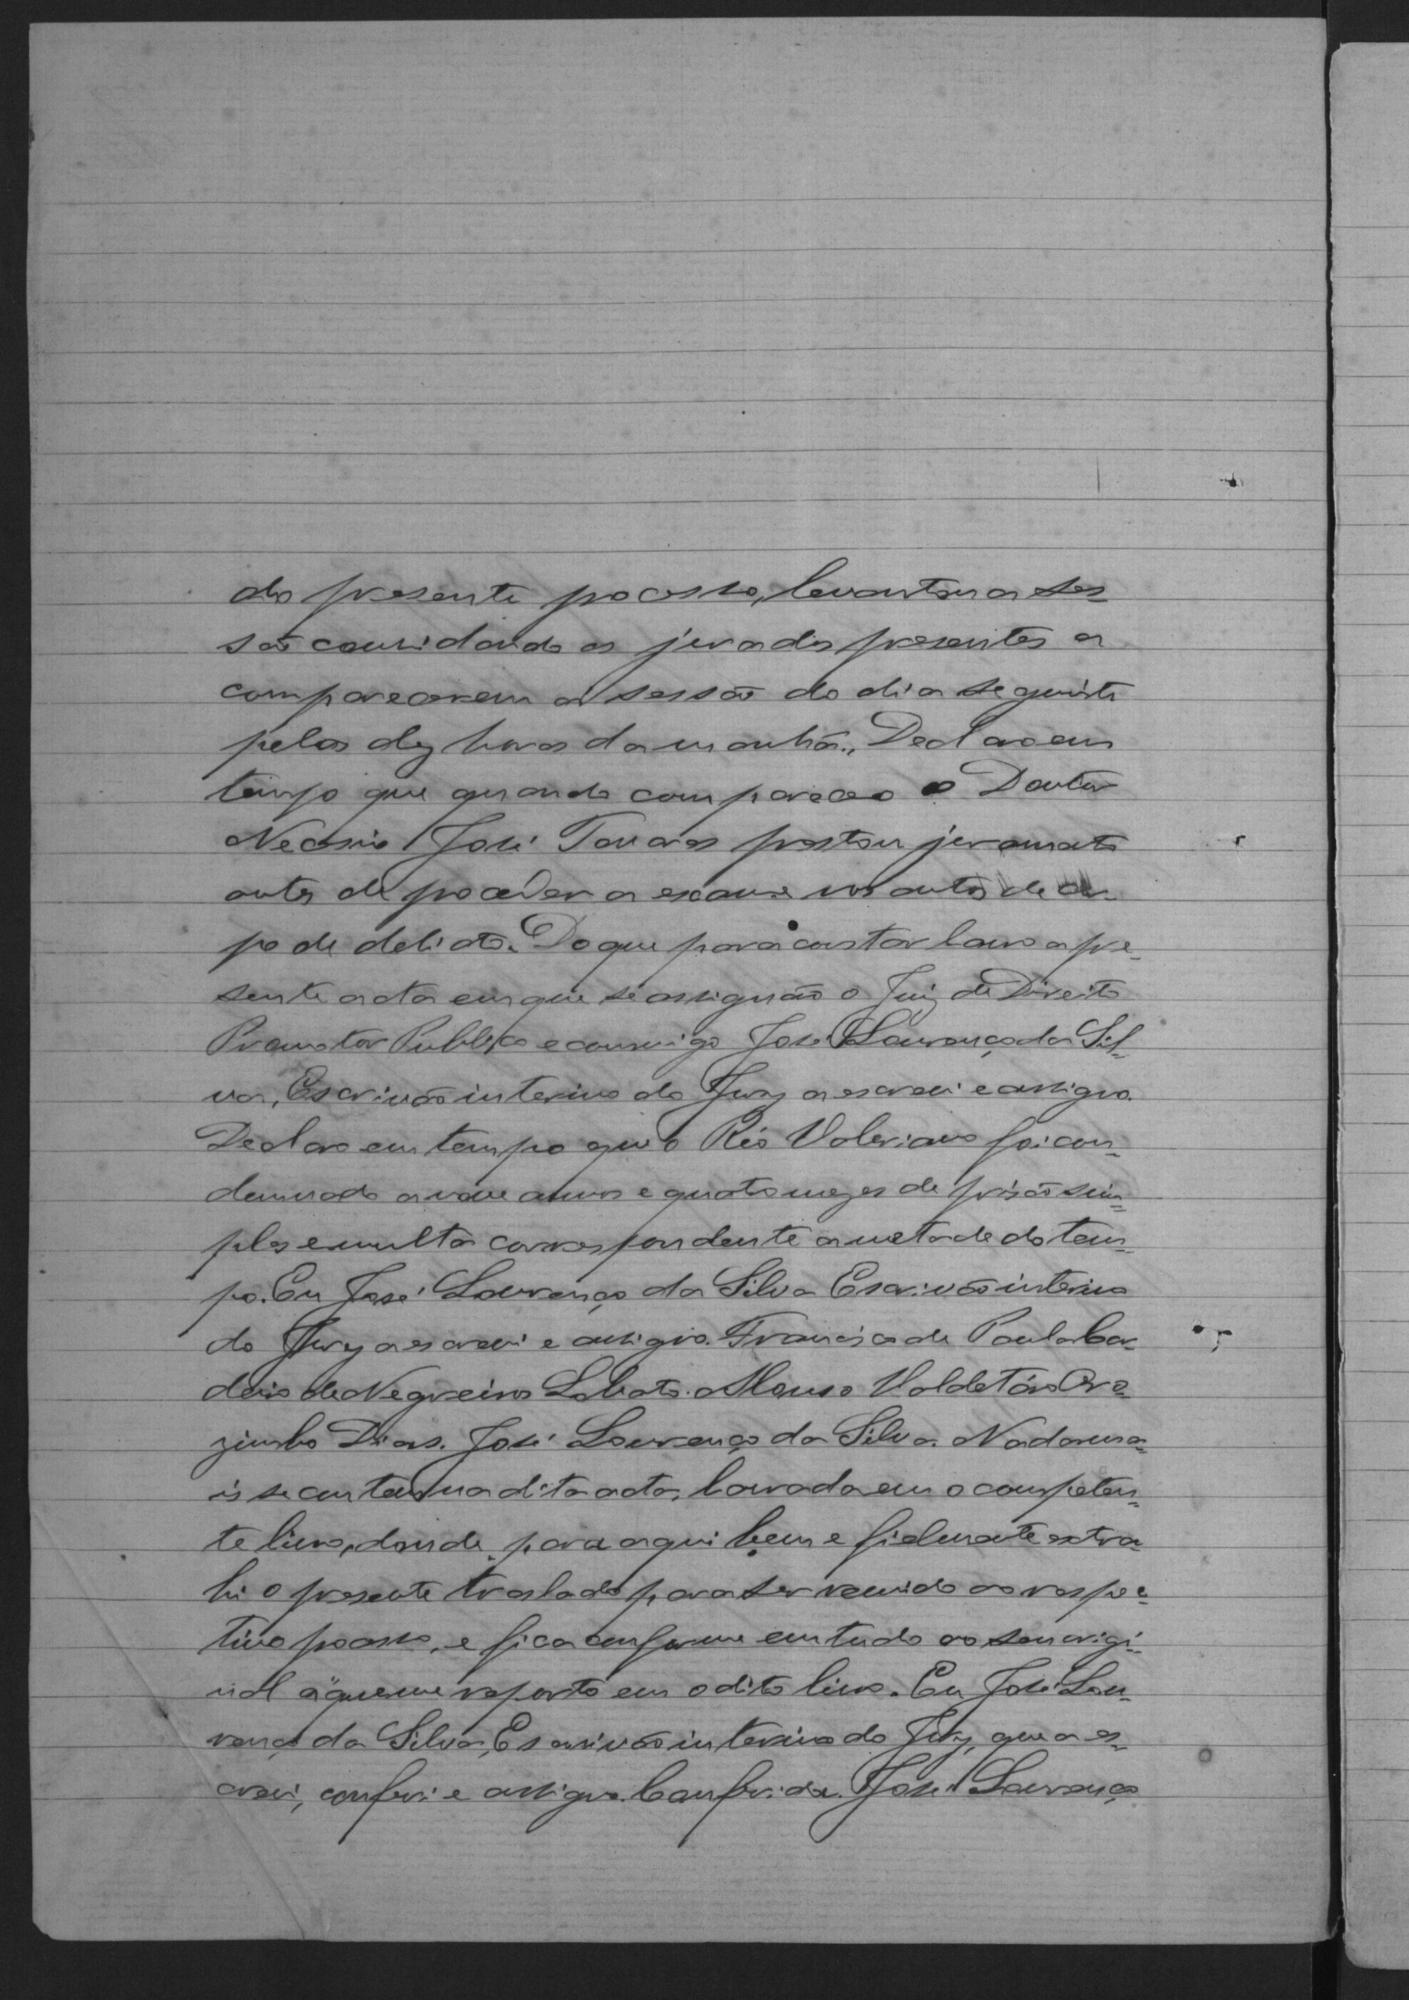 do presente processo, levantou a ses-
são convidando os jurados presentes a
comparecerem a sessão do dia seguinte
pelas dez horas da manhã. Declaro em
tempo que quando compareceo o Doutor
José Tavares prestou juramento
antes de proceder a exame nos autos de cor-
po de delicto. Do que para constar lavro a pre-
sente acta em que se assignão o Juiz de Direito
Promotor Publico e commigo José Lourenço da Sil-
va, Escrivão interino do Jury a escrevi e assigno.
Declaro em tempo que o Réo Valeriano foi con-
demnado a nove annos e quatro mezes de prisão sim-
ples e multa correspondente a metade do tem-
po. Eu José Lourenço da Silva Escrivão interino
do Jury a escrevi e assigno. Francisco de Paula Cor-
deiro de Negreiros Lobato. Valdetáro
Dias. José Lourenço da Silva. Nada ma-
is se contem na dita acta, lavrada em o competen-
te livro, donde para aqui bem e fielmente extra-
hi o presente traslado para ser reunido ao respec-
tivo processo, e fica conforme em tudo ao seu origi-
nal á que me reporto em o dito livro. Eu José Lou-
renço da Silva, Escrivão interino do Jury, que a es-
crevi, conferi e assigno. Conferida. José Lourenço